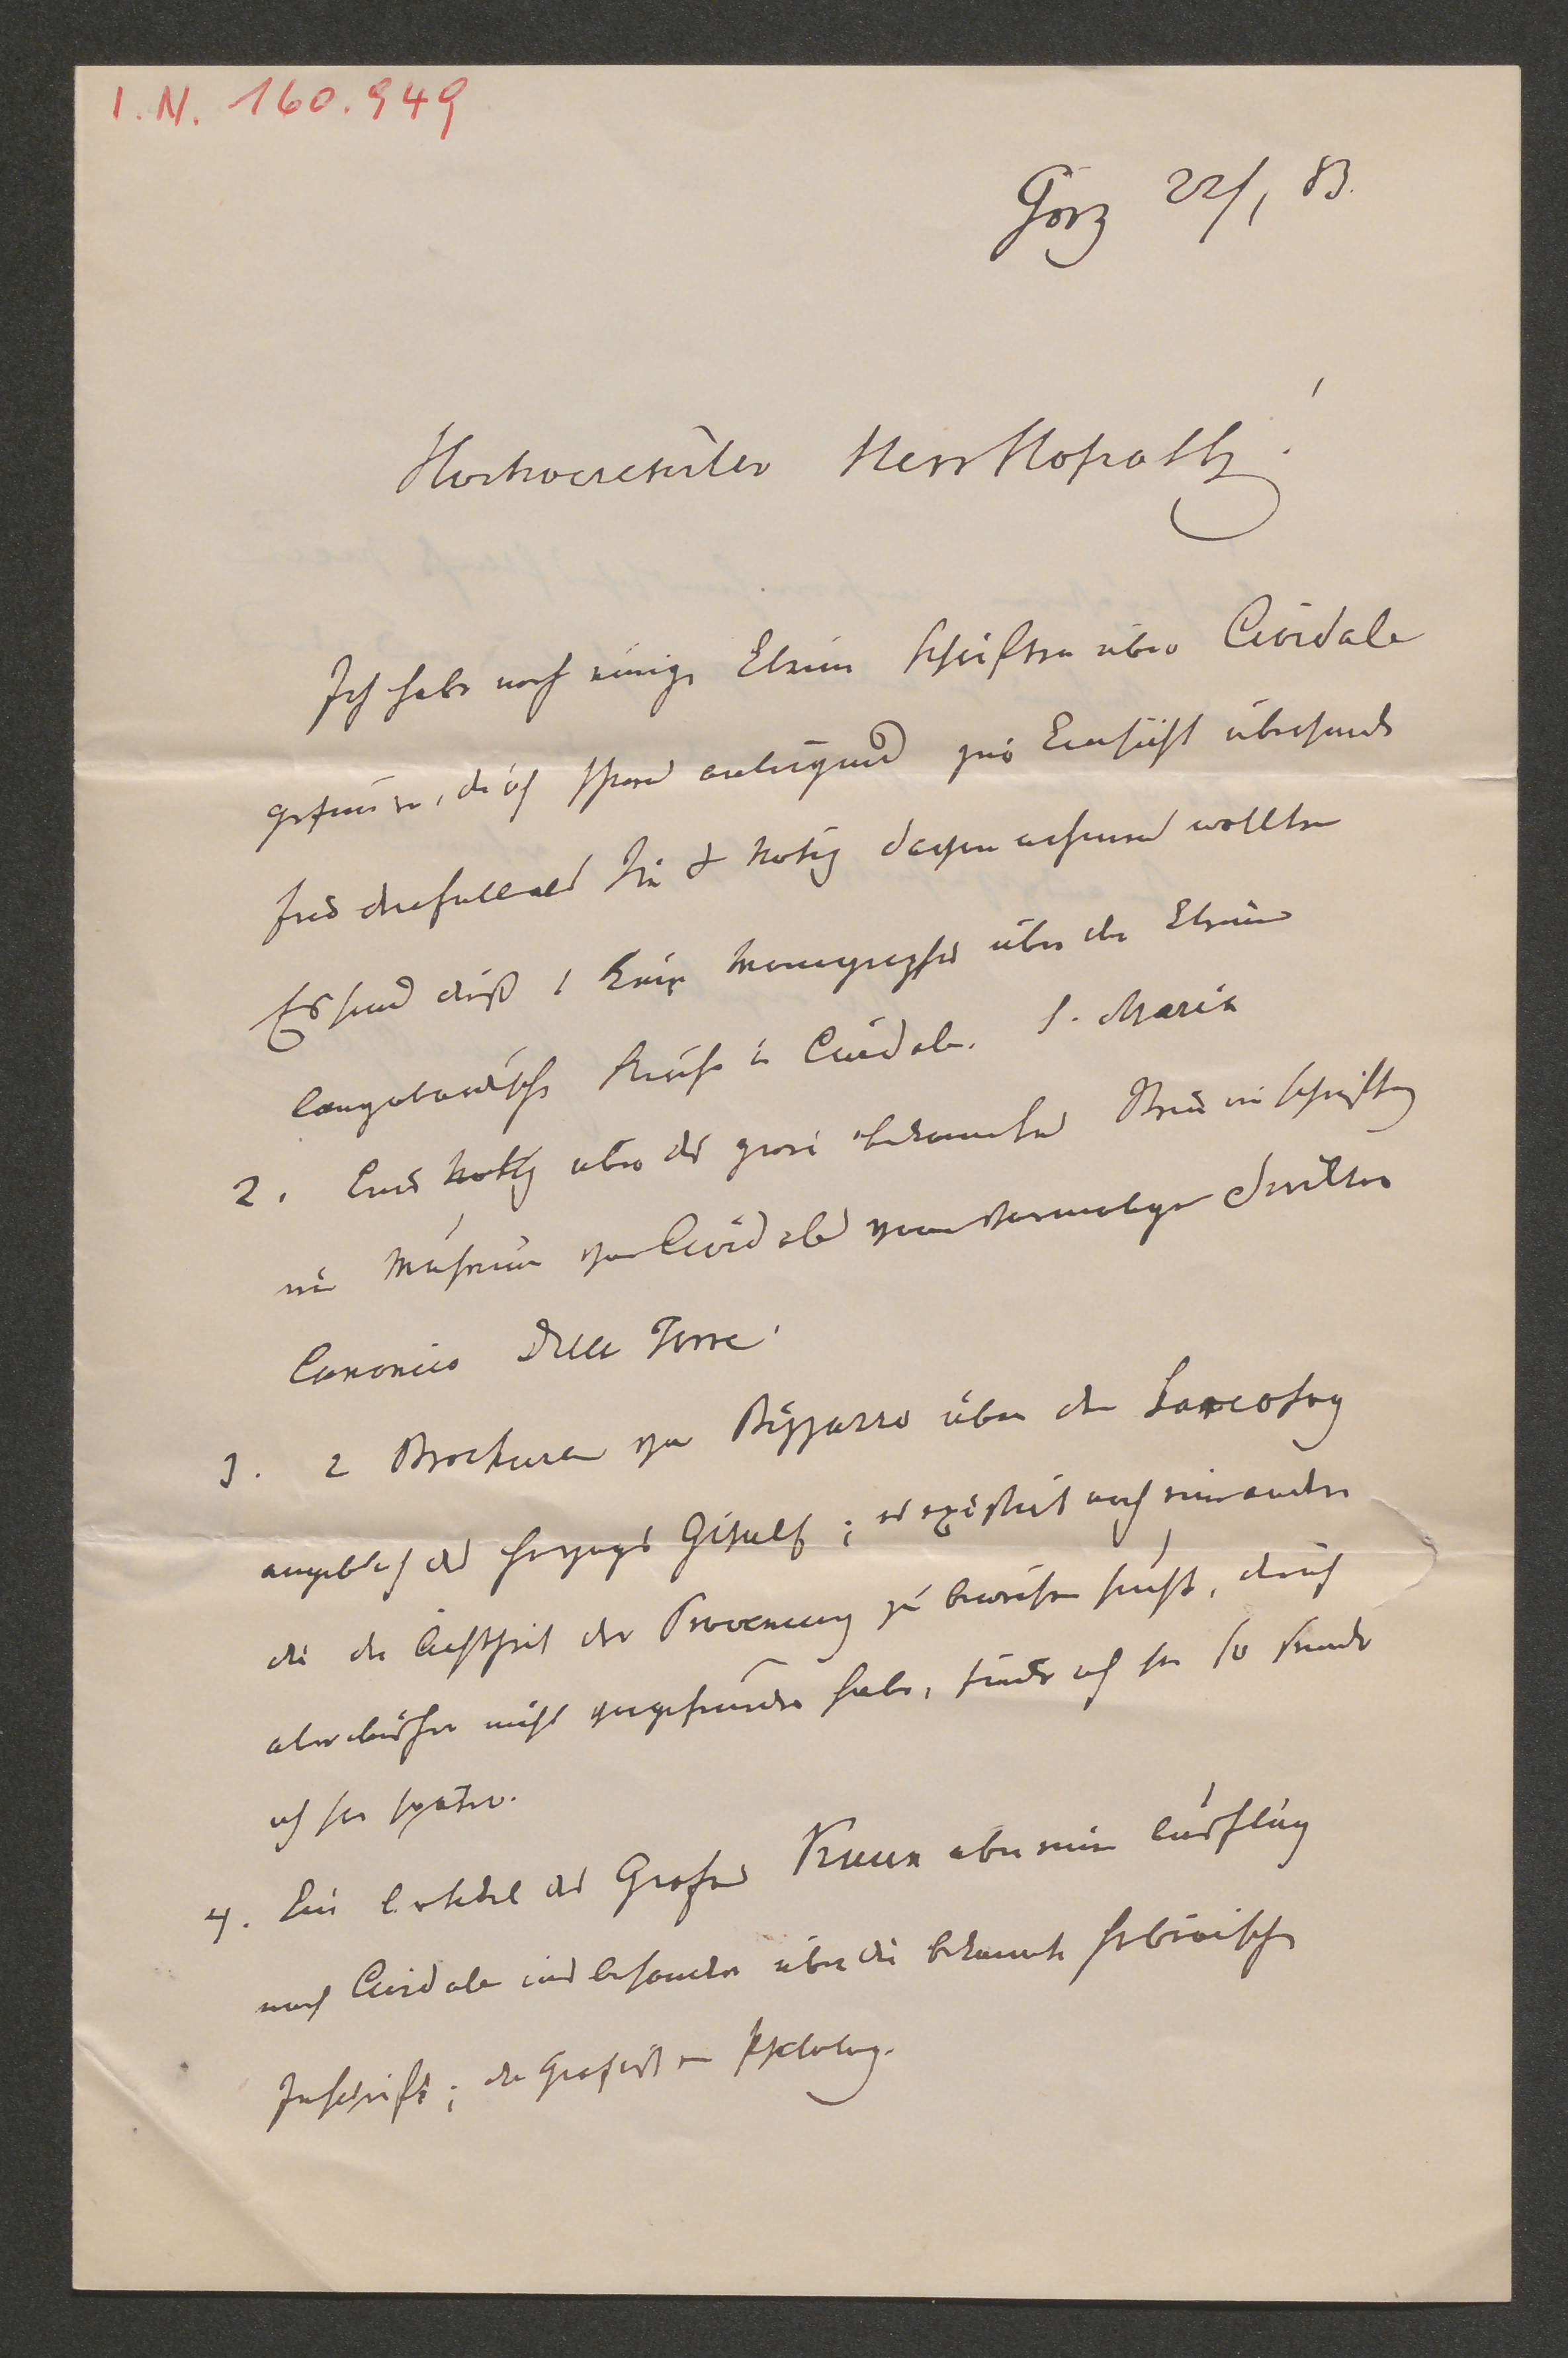 I.N. 160.949
Görz 22/1 83.
Hochverehrter Herr Hofrath!
Ich habe noch einige kleine Schriften über Cividale
gefunden, die ich Ihnen anliegend zur Einsicht übersende
falls Sie Notiz davon nehmen wollten
Es sind dieß 1 Eine Monographie über die kleine
langobardische Kirche in Cividale. S. Maria
2. Eine Notiz über die zwei bekannten Steininschriften
im Museum von Cividale vom damaligen Direktor
Canonico Della Torre.
3. 2 Brochuren von Bizzarro über den Sarcofag
angeblich des Herzogs Gisulf; es existirt noch eine andere
die die Echtheit der Provenienz zu beweisen sucht, die ich
aber bisher nicht gefunden habe, finde ich sie so sende
ich sie später.
4. Ein Artikel des Grafen Kuun über einen Ausflug
nach Cividale und besonders über die bekannte hebräische
Inschrift; der Graf ist ein Philolog.